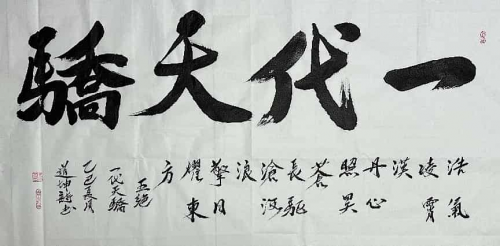 一代天驕
浩氣
凌霄
漢
丹心
照昊
蒼
長驅
滄
浪
擎日
耀東
方
五絕
一代天驕
乙巳夏月
道坤詩書